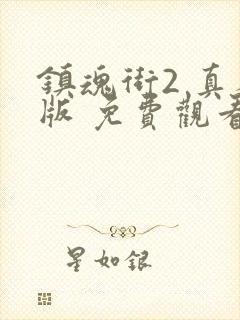 鎮魂街2 真
版 免費觀看
星如銀